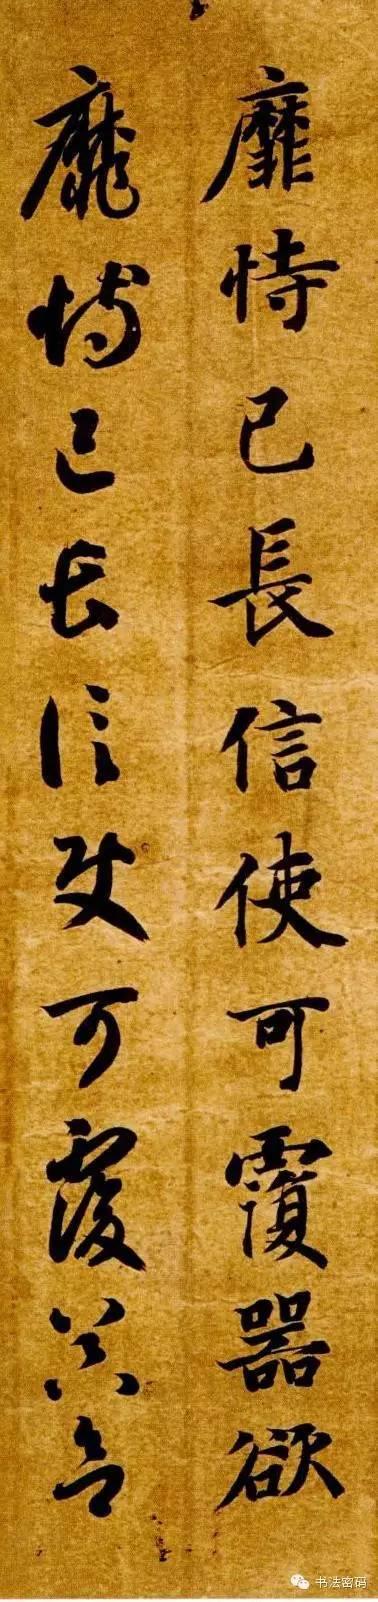 靡恃己長信使可覆器欲
靡恃己長信使可覆器欲
书法密码